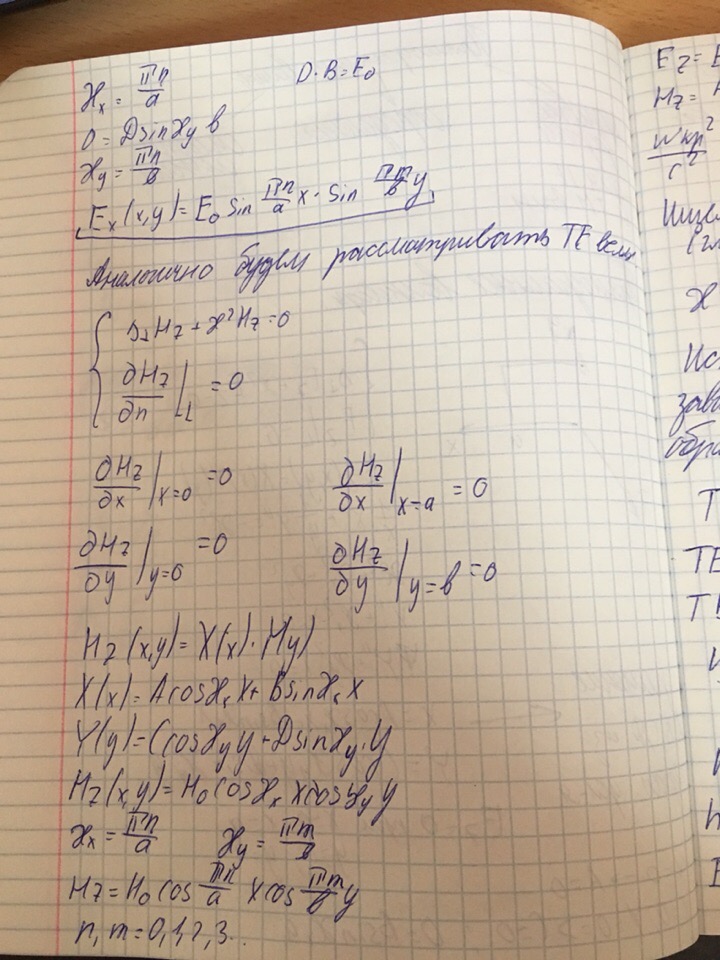 ϰx = πn/a    D·B = E₀
0 = D sin ϰy в
ϰy = πn/в
Ex(x,y) = E₀ sin πn/a x · sin πm/в y
Аналогично будем рассматривать TE волн
{ Δ⊥Hz + ϰ²Hz = 0
∂Hz/∂n |L = 0
∂Hz/∂x |x=0 = 0    ∂Hz/∂x |x=a = 0
∂Hz/∂y |y=0 = 0    ∂Hz/∂y |y=в = 0
Hz(x,y) = X(x)·Y(y)
X(x) = A cos ϰx x + B sin ϰx x
Y(y) = C cos ϰy y + D sin ϰy y
Hz(x,y) = H₀ cos ϰx x cos ϰy y
ϰx = πn/a    ϰy = πm/в
Hz = H₀ cos πn/a x cos πm/в y
n, m = 0,1,2,3..
Ez =
Hz =
wкр²/c²
ϰ
зави
обра
T
TE